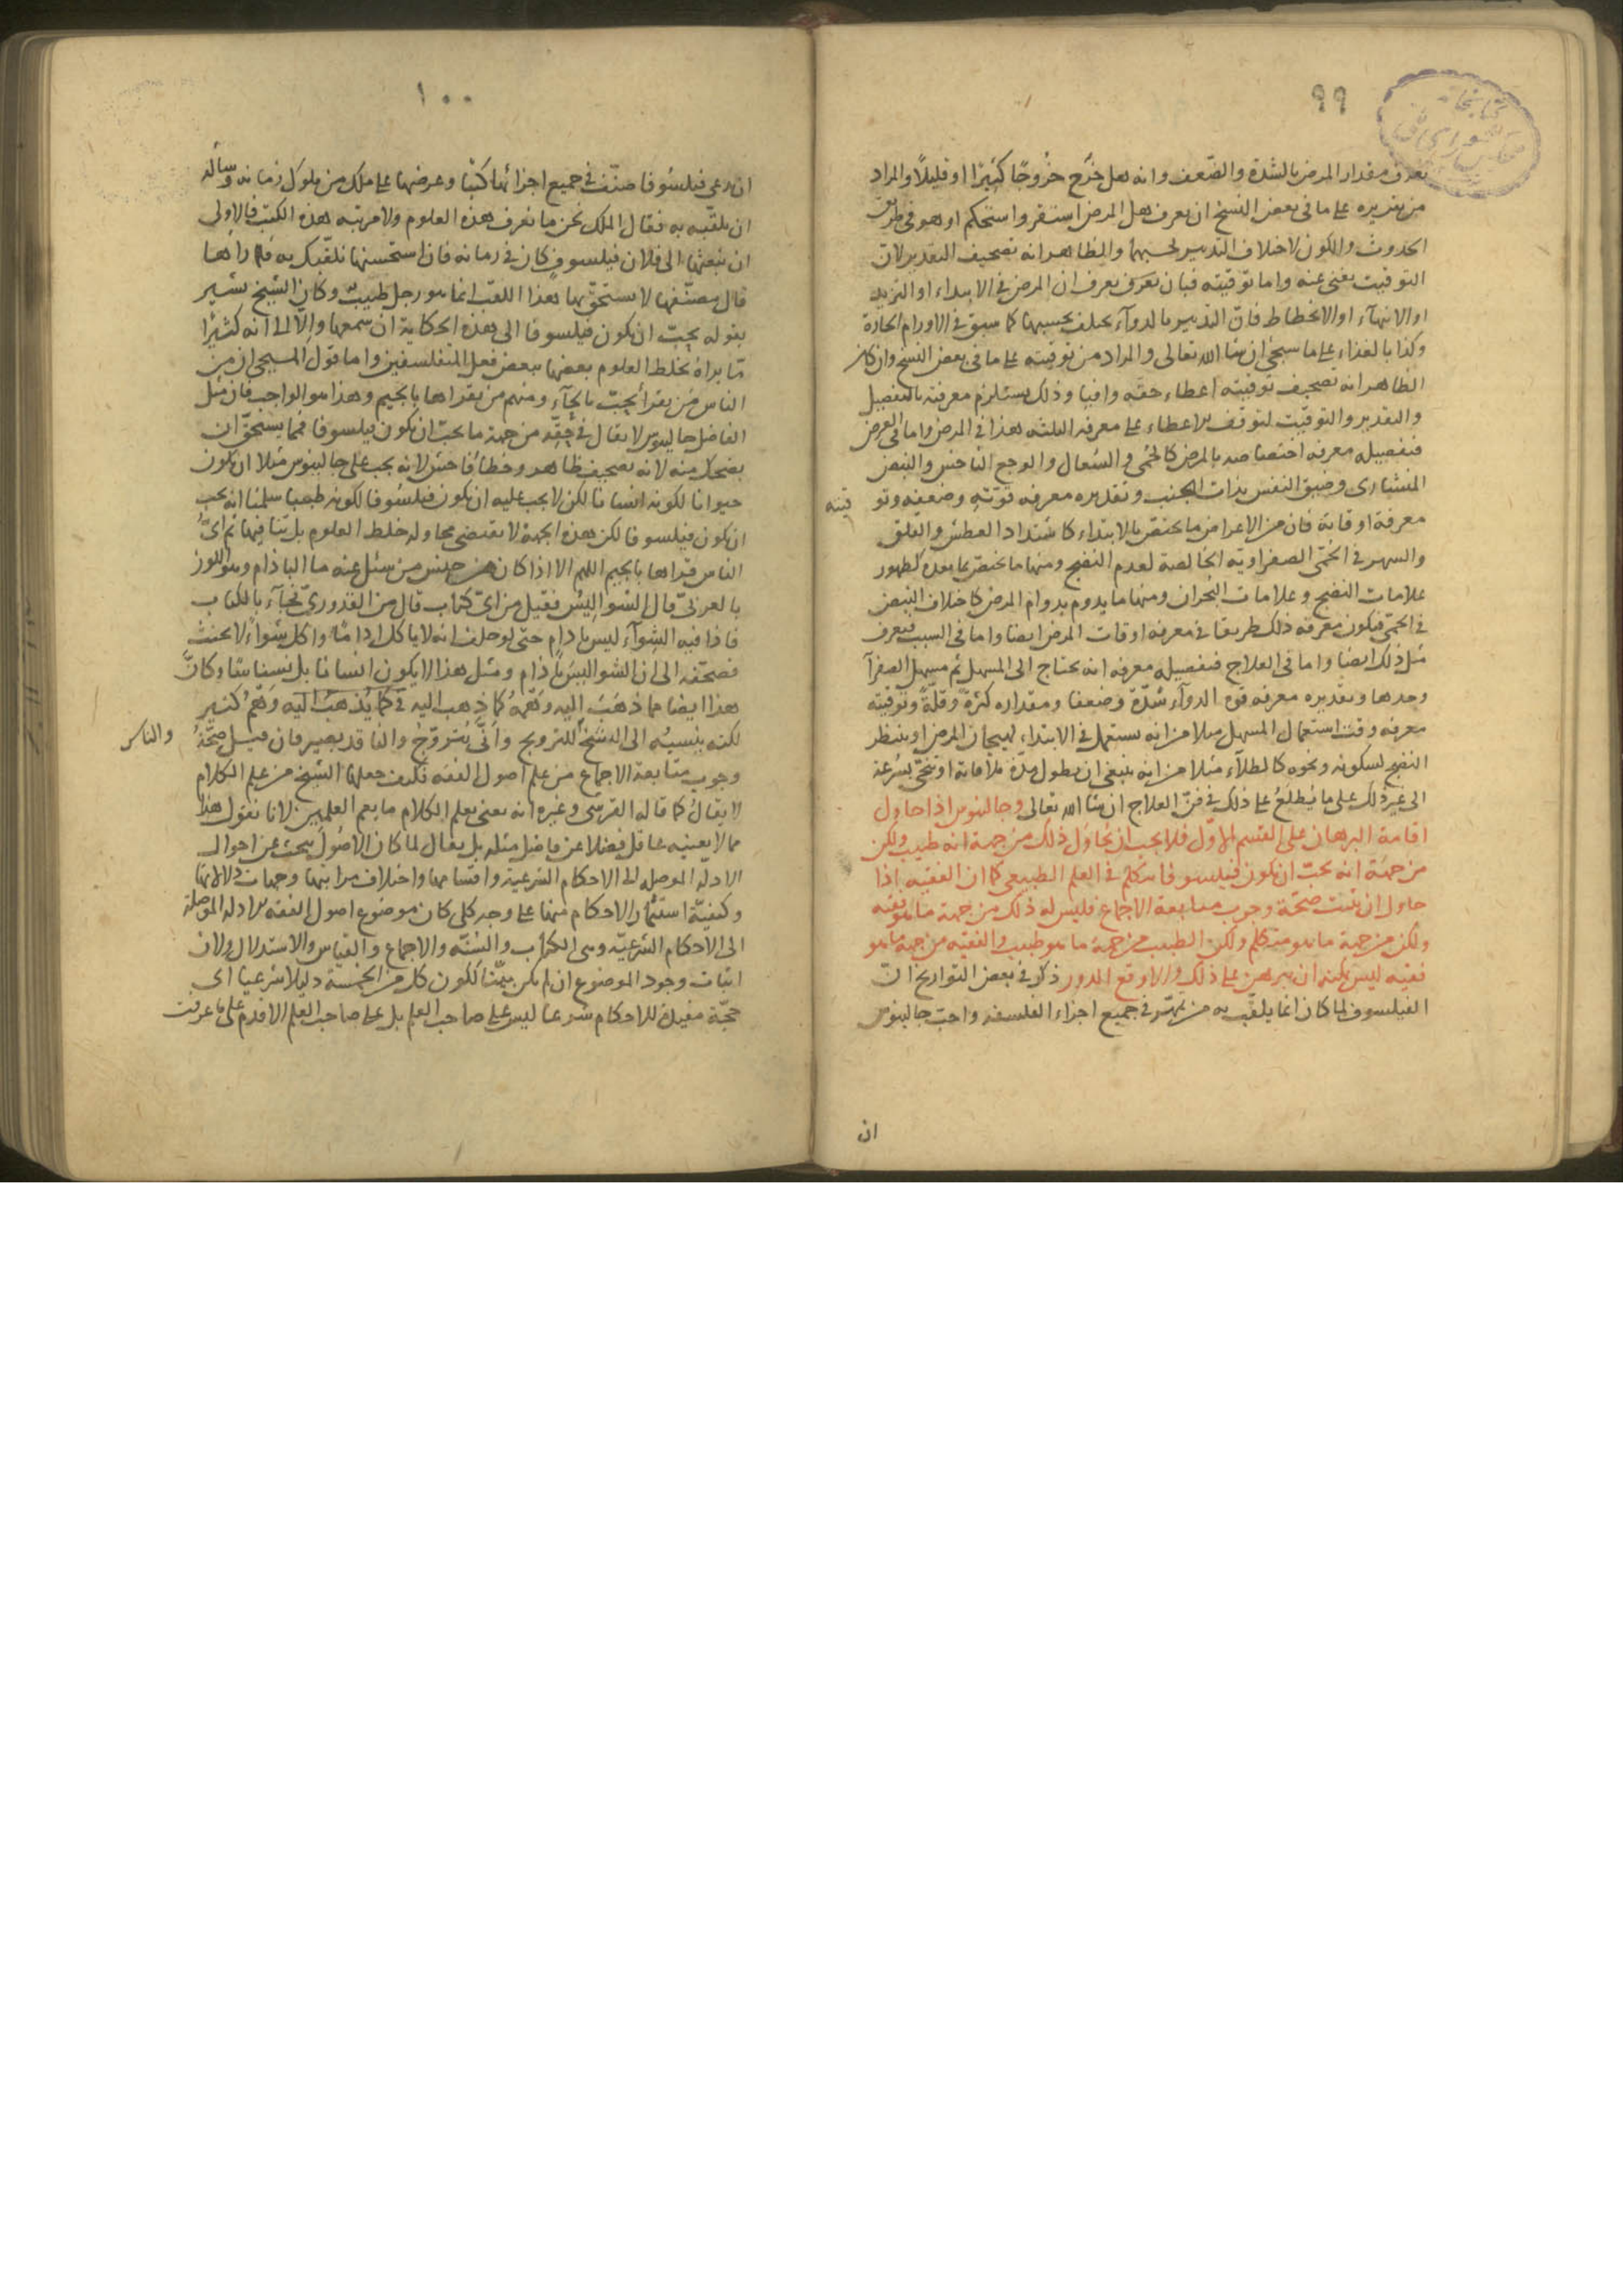 ٩٩
تعرف مقدار المرض بالشدة والضعف وانه هل خرج خروجًا كثيرًا او قليلًا والمراد
من تقديره على ما فى بعض النسخ ان يعرف هل المرض استقر واستحكم او هو فى طريق
الحدوث والكون لاختلاف التدبير بحسبهما والظاهر انه تصحيف التقدير لان
التوقيت يغنى عنه واما توقيته فبان تعرف يعرف ان المرض فى الابتداء او التزيد
او الانتهاء او الانحطاط فان التدبير بالدوآء يختلف بحسبها كما سبق فى الاورام الحادة
وكذا بالغذاء على ما سيجئ ان شا الله تعالى والمراد من توفيته على ما فى بعض النسخ وان كان
الظاهر انه تصحيف توقيته اعطاء حقه وافيا وذلك يستلزم معرفته بالتفصيل
والتقدير والتوقيت لتوقف الاعطاء على معرفه الثلثه هذا فى المرض واما فى العرض
فتفصيله معرفه اختصاصه بالمرض كالحمى و السعال والوجع الناخس والنبض
المنشارى وضيق النفس بذات الجنب وتقديره معرفه قوته وضعفه وتو
قيته
معرفة اوقاته فان من الاعراض ما يختص بالابتداء كاشتداد العطش والقلق
والسهر فى الحمى الصفراوية الخالصة لعدم النضج ومنها ما يختص بما بعده كظهور
علامات النضج وعلامات البحران ومنها ما يدوم بدوام المرض كاختلاف النبض
فى الحمى فيكون معرفة ذلك طريقا فى معرفه اوقات المرض ايضا واما فى السبب فيعرف
مثل ذلك ايضا واما فى العلاج فتفصيله معرفه انه يحتاج الى المسهل ثم مسهل الصفرآ
وحدها وتقديره معرفه قوة الدوآء شدّة وضعفا ومقداره كثرةً وقلّةً وتوقيته
معرفه وقت استعمال المسهل مثلا من انه يستعمل فى الابتداء لهيجان المرض او ينتظر
النضج لسكونه ونحوه كالطلآء مثلا من انه ينبغى ان يطول مدّة ملاقاته او ينحّى بسرعة
الى غير ذلك على ما يُطلعُ على ذلك فى فنّ العلاج ان شا الله تعالى وجالينوس اذا حاول
اقامة البرهان على القسم الاوّل فلا يجب ان يُحاوِل ذلك من جهة انه طبيب ولكن
من جهة انه يحبّ ان يكون فيلسوفا يتكلم فى العلم الطبيعى كما ان الفقيه اذا
حاول ان يثبت صحّة وجوب متابعة الاجماع فليس له ذلك من جهة ما هو فقيه
ولكن من جهة ما هو متكلم ولكن الطبيب من جهة ما هو طبيب والفقيه من جهة ما هو
فقيه ليس يمكنه ان يبرهن على ذلك والا وقع الدور ذكر فى بعض التواريخ انّ
الفيلسوف لما كان انما يلقّب به من تمهّر فى جميع اجزاء الفلسفه واحبّ جالينوس
ان
١٠٠
ان يدعى فيلسُوفا صنّف فى جميع اجزائها كتبًا وعرضها على ملك من ملوك زمانه وسأله
ان يلقبه به فقال الملك نحن ما نعرف هذه العلوم ولا مرتبه هذه الكتب فالاولى
ان نبعثها الى فلان فيلسوفٍ كان فى زمانه فان استحسنها نلقّبك به فلما رآها
قال مصنّفها لا يستحقّ بها هذا اللقب انما هو رجل طبيبٌ وكان الشيخ يشير
بقوله يحبّ ان يكون فيلسوفا الى هذه الحكاية ان سمعها والّا الى انه كثيرًا
مّا يراهُ يخلط العلوم بعضها ببعض فعل المتفلسفين واما قول المسيحى ان من
الناس من يقرأ يُحبّ بالحآء ومنهم من يقراها بالجيم وهذا هو الواجب فان مثل
الفاضل جالينوس لا يقال فى حقّه من جهة ما يحبّ ان يكون فيلسوفا فمما يستحقّ ان
يضحك منه لانه تصحيف ظاهر وخطأ فاحش لانه يجب على جالينوس مثلا ان يكون
حيوانا لكونه انسانا لكن لا يجب عليه ان يكون فيلسُوفا لكونه طبيبا سلمنا انه يجب
ان يكون فيلسوفا لكن هذه الجهة لا تقتضى محاوله خلط العلوم بل ينافيها ثم اىُّ
الناس قراها بالجيم اللهم الا اذا كان من جنس من سئل عنه ما الباذام وهو اللوز
بالعربىّ قال الشو اليس فقيل من اىّ كتاب قال من القدورى فجآء بالكتاب
فاذا فيه الشوآء ليس بادام حتى لو حلف انه لا ياكل اداما واكل شواءً لا يحنث
فصحّفه الى ان الشو اليس باذام ومثل هذا لا يكون انسانا بل نسناسًا وكانّ
هذا ايضا مما ذَهَبَ اليه وَهْمُهُ كما ذهب اليه فى كما يُذهب اليه وَهْم كثير
لكنه ينسبُه الى الشيخ للترويج وأنّى يُتروّجُ والناقد بصير فان قيل صحّةُ
والناس
وجوب متابعة الاجماع من علم اصول الفقه فكيف جعلها الشيخ من علم الكلام
لا يقالُ كما قاله القرشى وغيره انه يعنى بعلم الكلام ما يعم العلمين لانا نقول هذا
مما لا يعنيه عاقل فضلا عن فاضل مثله بل يقال لما كان الاصُول يبحث عن احوال
الادله الموصله الى الاحكام الشرعية واقسامها واختلاف مراتبها وجهات دلالاتها
وكيفيّة استثمار الاحكام منها على وجه كلى كان موضوع اصول الفقه الادله الموصلة
الى الاحكام الشرعيّه وهى الكتاب والسُّنه والاجماع والقياس والاستدلال ولان
اثبات وجود الموضوع ان لم يكن بيّنًا ككون كل من الخمسة دليلا شرعيا اى
حجّة مفيدة للاحكام شرعا ليس على صاحب العلم بل على صاحب العلم الاقدم على ما عرفت